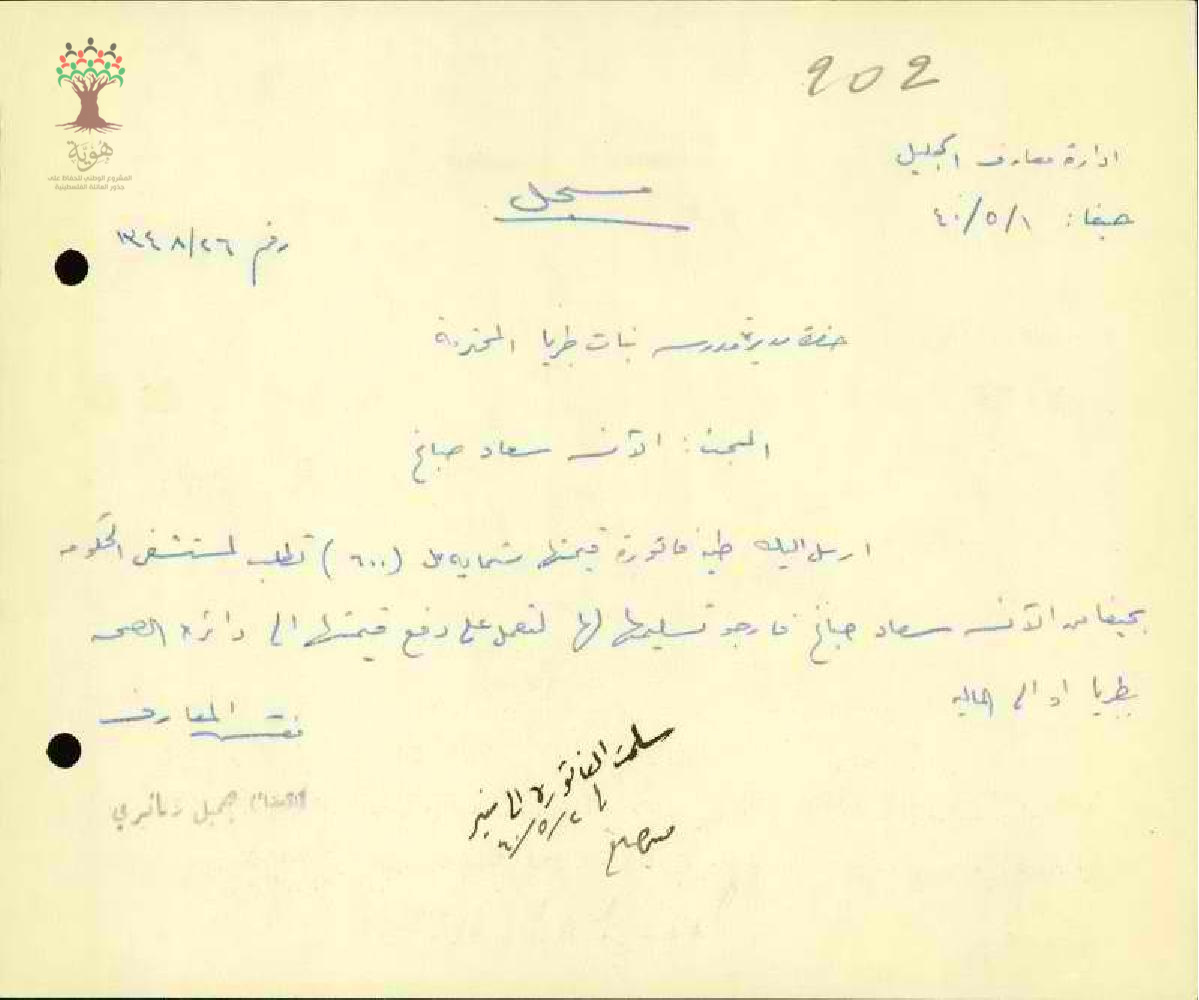 هُوِيَّة
المشروع الوطني للحفاظ على
جذور العائلة الفلسطينية
902
ادارة معارف الجليل
حيفا: ٤٠/٥/١
مسجل
رقم ١٣٤٨/٢٦
حضرة مديرة مدرسة بنات طبريا المحترمة
المبحث: الآنسة سعاد صباغ
ارسل اليك طيه فاتورة قيمتها ستماية مل (٦٠٠) تطلب لمستشفى الحكومة
بحيفا من الآنسة سعاد صباغ فارجو تسليمها لها لتعمل على دفع قيمتها الى دائرة الصحة
بطبريا او الى المالية
مفتش المعارف
جميل زعاتيري
سلمت الفاتورة الى